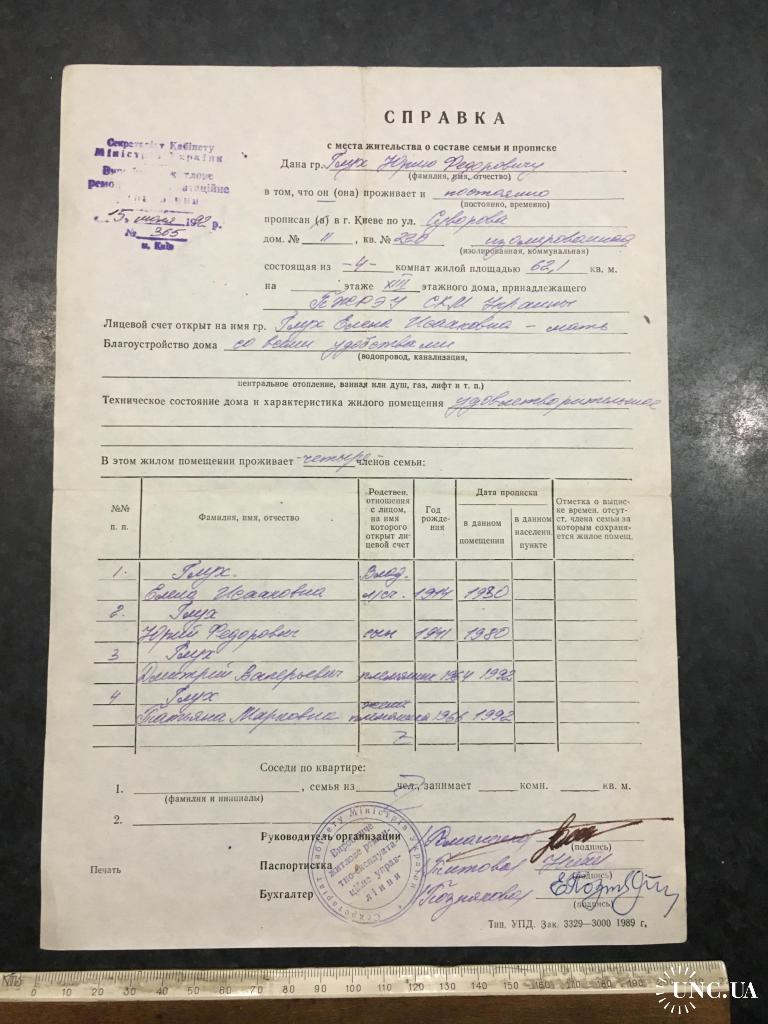 СПРАВКА
с места жительства о составе семьи и прописке
Секретаріат Кабінету
Міністрів України
15 мая 1992 р.
№ 365
м. Київ
Дана гр. Глух Юрию Федоровичу
(фамилия, имя, отчество)
в том, что он (она) проживает и постоянно
(постоянно, временно)
прописан (а) в г. Киеве по ул. Суворова
дом. № 11, кв. № 220 изолированная
(изолированная, коммунальная)
состоящая из -4- комнат жилой площадью 62,1 кв. м.
на этаже XIII этажного дома, принадлежащего
Украины
Лицевой счет открыт на имя гр. Глух Елена Исааковна - мать
Благоустройство дома со всеми удобствами
(водопровод, канализация,
центральное отопление, ванная или душ, газ, лифт и т. п.)
Техническое состояние дома и характеристика жилого помещения удовлетворительное
В этом жилом помещении проживает -четыре- членов семьи:
№№ п. п.
Фамилия, имя, отчество
Родствен. отношения с лицом, на имя которого открыт лицевой счет
Год рождения
Дата прописки
в данном помещении
в данном населенн. пункте
Отметка о выписке времен. отсут. члена семьи за которым сохраняется жилое помещ.
1. Глух.
Елена Исааковна 1914 1980
2. Глух
Юрий Федорович сын 1941 1980
3 Глух
Дмитрий Валерьевич племянник 1964 1992
4 Глух
Татьяна Марковна 1966 1992
Соседи по квартире:
1. , семья из чел., занимает комн. кв. м.
(фамилия и инициалы)
2.
Руководитель организации
(подпись)
Паспортистка Титова
(подпись)
Печать
Бухгалтер Познякова
(подпись)
Секретаріат Кабінету Міністрів України
Виробниче житлове ремонтно-експлуатаційне управління
Тип. УПД. Зак. 3329—3000 1989 г.
0 10 20 30 40 50 60 70 80 90 100 110 120 130 140 150 160 170 180 190
UNC.UA